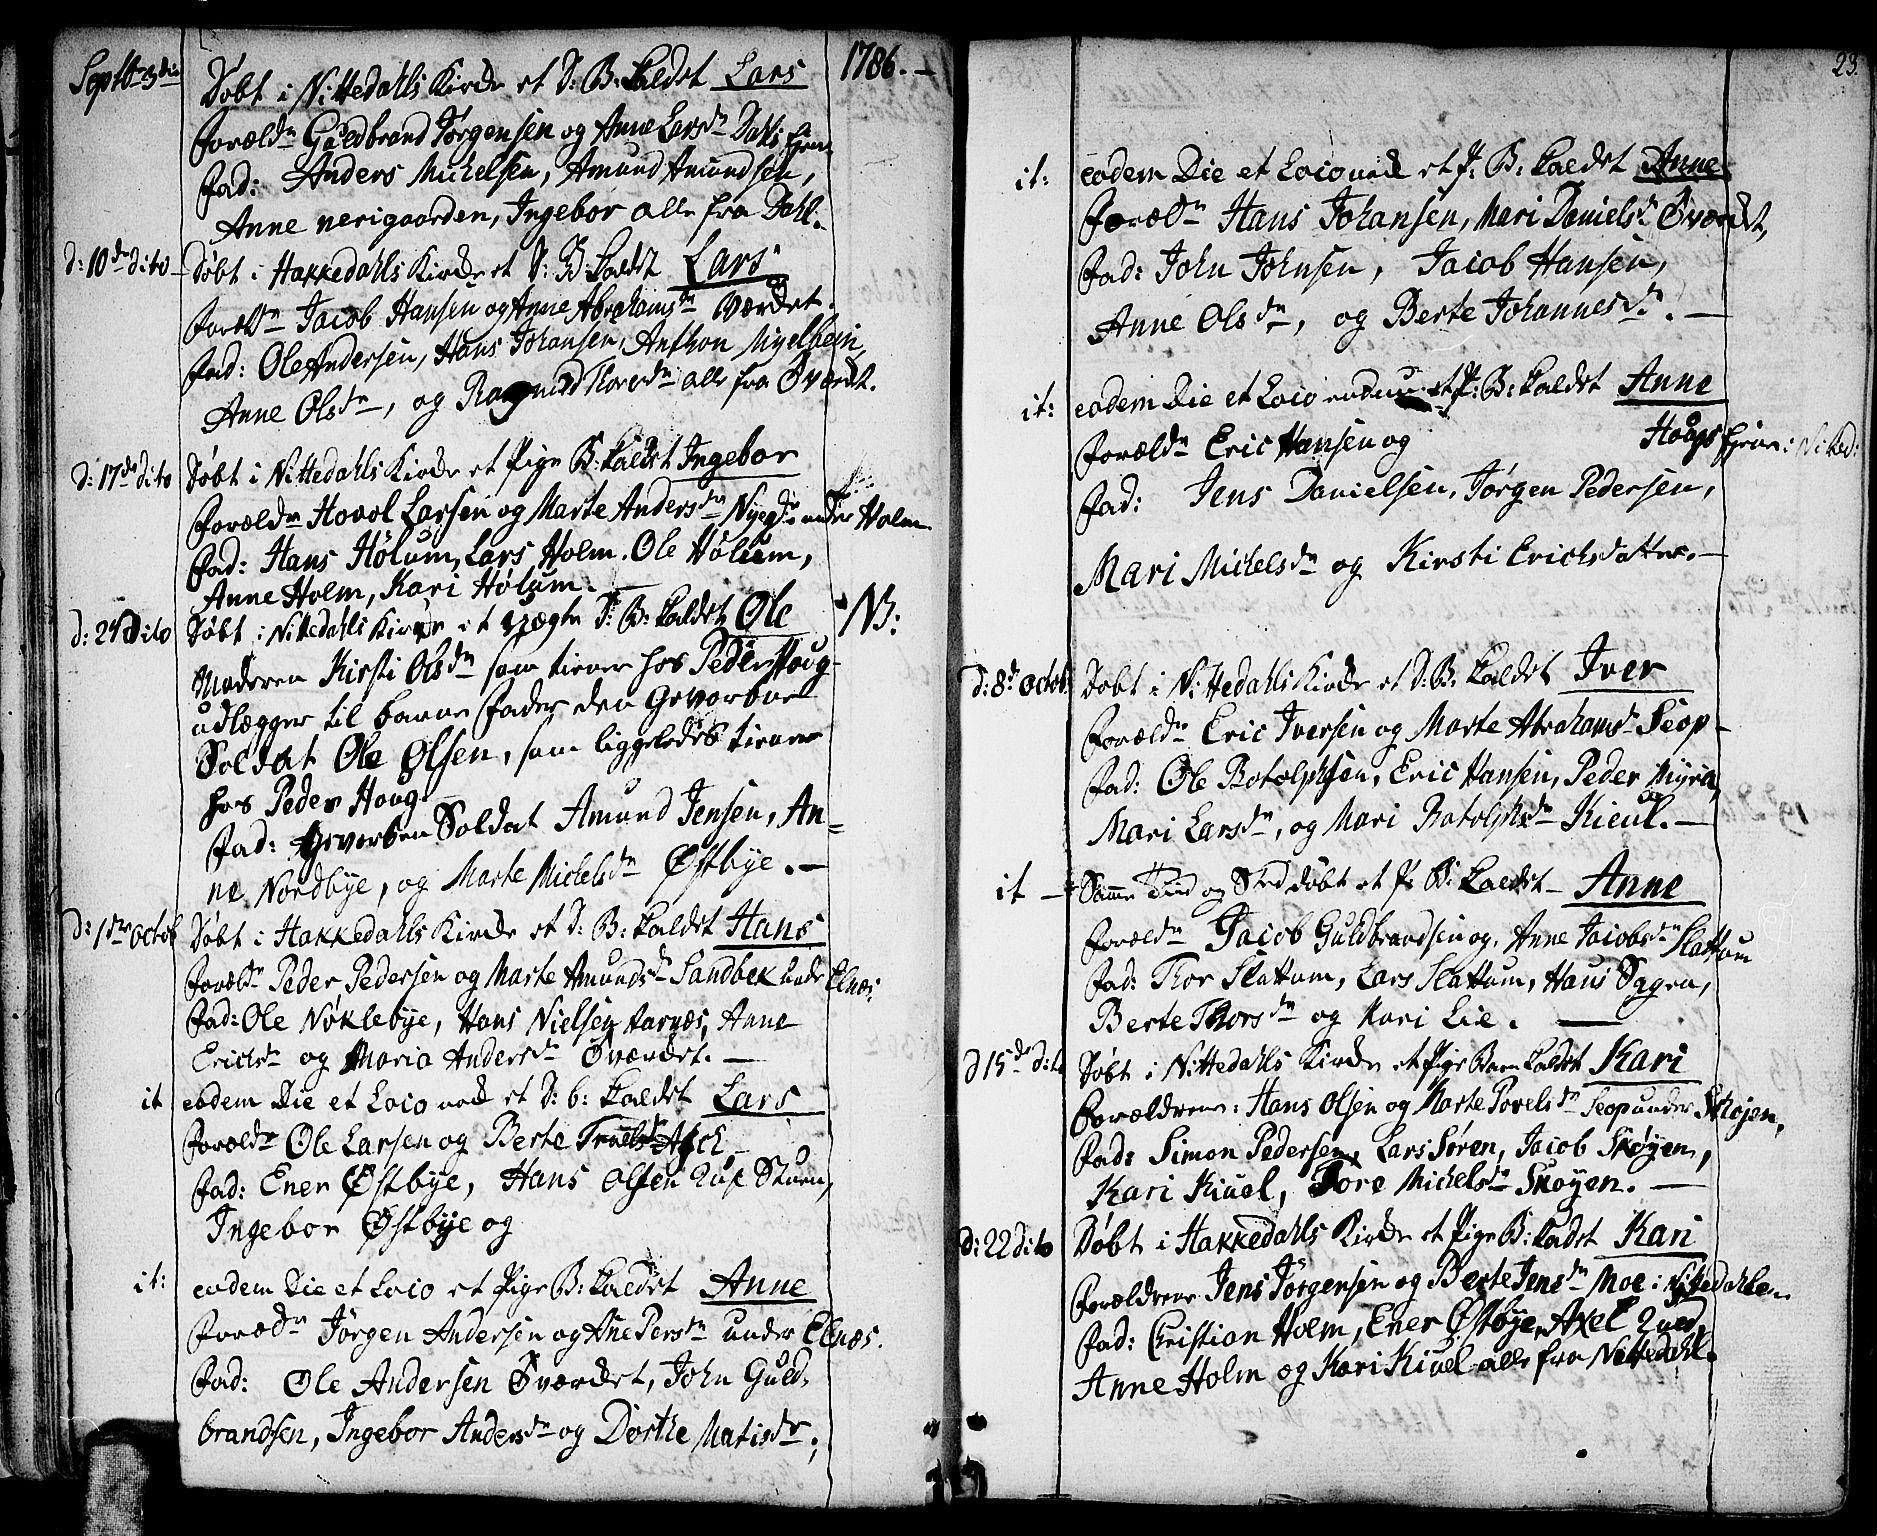 1786. —
Septb 3die Døbt i Nittedahls Kirke et D: B: kaldet Lars
Foreældn Guldbrand Jørgensen og Anne Larsdn Dahls Eyen
Fad: Anders Michelsen, Amund Amundsen,
Anne nerigaarden, Ingebor alle fra Dahl.
d: 10de dito Døbt i Hakkedahls Kirke et D: B: kaldet Lars
Foreældn Jacob Hansen og Anne Abrahamsdn Værket.
Fad: Ole Andersen, Hans Johansen, Anthon Myelbein
Anne Olsdn, og Ragnild Thoresdn alle fra Øværdt.
d: 17de dito Døbt i Nittedahls Kirke et Pige B: kaldet Ingebor
Foreældn Hovol Larsen og Marte Andersdn Nyegdt under Holm
Fad: Hans Hølum, Lars Holm. Ole Hølum,
Anne Holm, Kari Hølum. —
d: 24 dito Døbt i Nittedahls Kirke et uægte D: B: kaldet Ole NB:
Moderen Kirsti Olsdn som tiener hos Peder Houg
udlægger til barne Fader den Gevorbne
Soldat Ole Olsen, som liggeledes tiener
hos Peder Houg —
Fad: Gevorben Soldat Amund Jensen, An=
ne Nordbye, og Marte Michelsdn Østbye. —
d: 1ste Octob Døbt i Hakkedahls Kirke et D: B: kaldet Hans
Foreældn Peder Pedersen og Marte Amundsdn Sandbek under Elnæs.
Fad: Ole Nøklebye, Hans Nielsen Aarnæs, Anne
Erichsdn og Maria Andersdn Øværdet. —
it eodem Die et Loco nok et D: b: kaldet Lars
Foreældn Ole Larsen og Berte Truelsdn Asch
Fad: Ener Østbye, Hans Olsen Stuen,
Ingebor Østbye og
it: eodem Die et Loco et Pige B: kaldet Anne
Foreædn Jørgen Andersen og Ane Persdn under Elnæs.
Fad: Ole Andersen Øværdet, John Guld
brandsen, Ingebor Andersdn og Dorthe Matisdr.
23.
it: eodem Die et Loco nok et P: B: kaldet Anne
Foreældn Hans Johansen, Mari Danielsdn Øværdt,
Fad: John Johnsen, Jacob Hansen,
Anne Olsdn, og Berte Johannesdn. —
it: eodem Die et Loco endnu et P: B: kaldet Anne
Foreældn Eric Hansen og Hougs Eyen i Nitted:
Fad: Jens Danielsen, Jørgen Pedersen,
Mari Michelsdn og Kirsti Erichsdatter. —
d: 8de Octob: Døbt i Nittedahls Kirke et D: B: kaldet Iver
Foreældn Eric Iversen og Marte Abrahamsdn Seop —
Fad: Ole Botolphsen, Eric Hansen, Peder Myra,
Mari Larsdn, og Mari Botolphsdn Kieul. —
it — Samme Tiid og Sted døbt et P: B: kaldet — Anne
Foreældn Jacob Guldbrandsen og Anne Jacobsdn Slattum
Fad: Thor Slattum, Lars Slattum, Hans Sagen,
Berte Thorsdn og Kari Lie. —
d 15de dito Døbt i Nittedahls Kirke et Pige Barn kaldet Kari
Forældrene: Hans Olsen og Marte Povelsdn Seop under Skøjen,
Fad: Simon Pedersen, Lars Søren, Jacob Skøyen,
Kari Kiuel, Tore Michelsdn Skøyen. —
d: 22 dito Døbt i Hakkedahls Kirke et Pige B: kadet Kari
Forældrene Jens Jørgensen og Berte Jensdn Moe i Nittedahlen
Fad: Christian Holm, Ener Østbye, Axel Quern,
Anne Holm og Kari Kiuel alle fra Nittedahl.